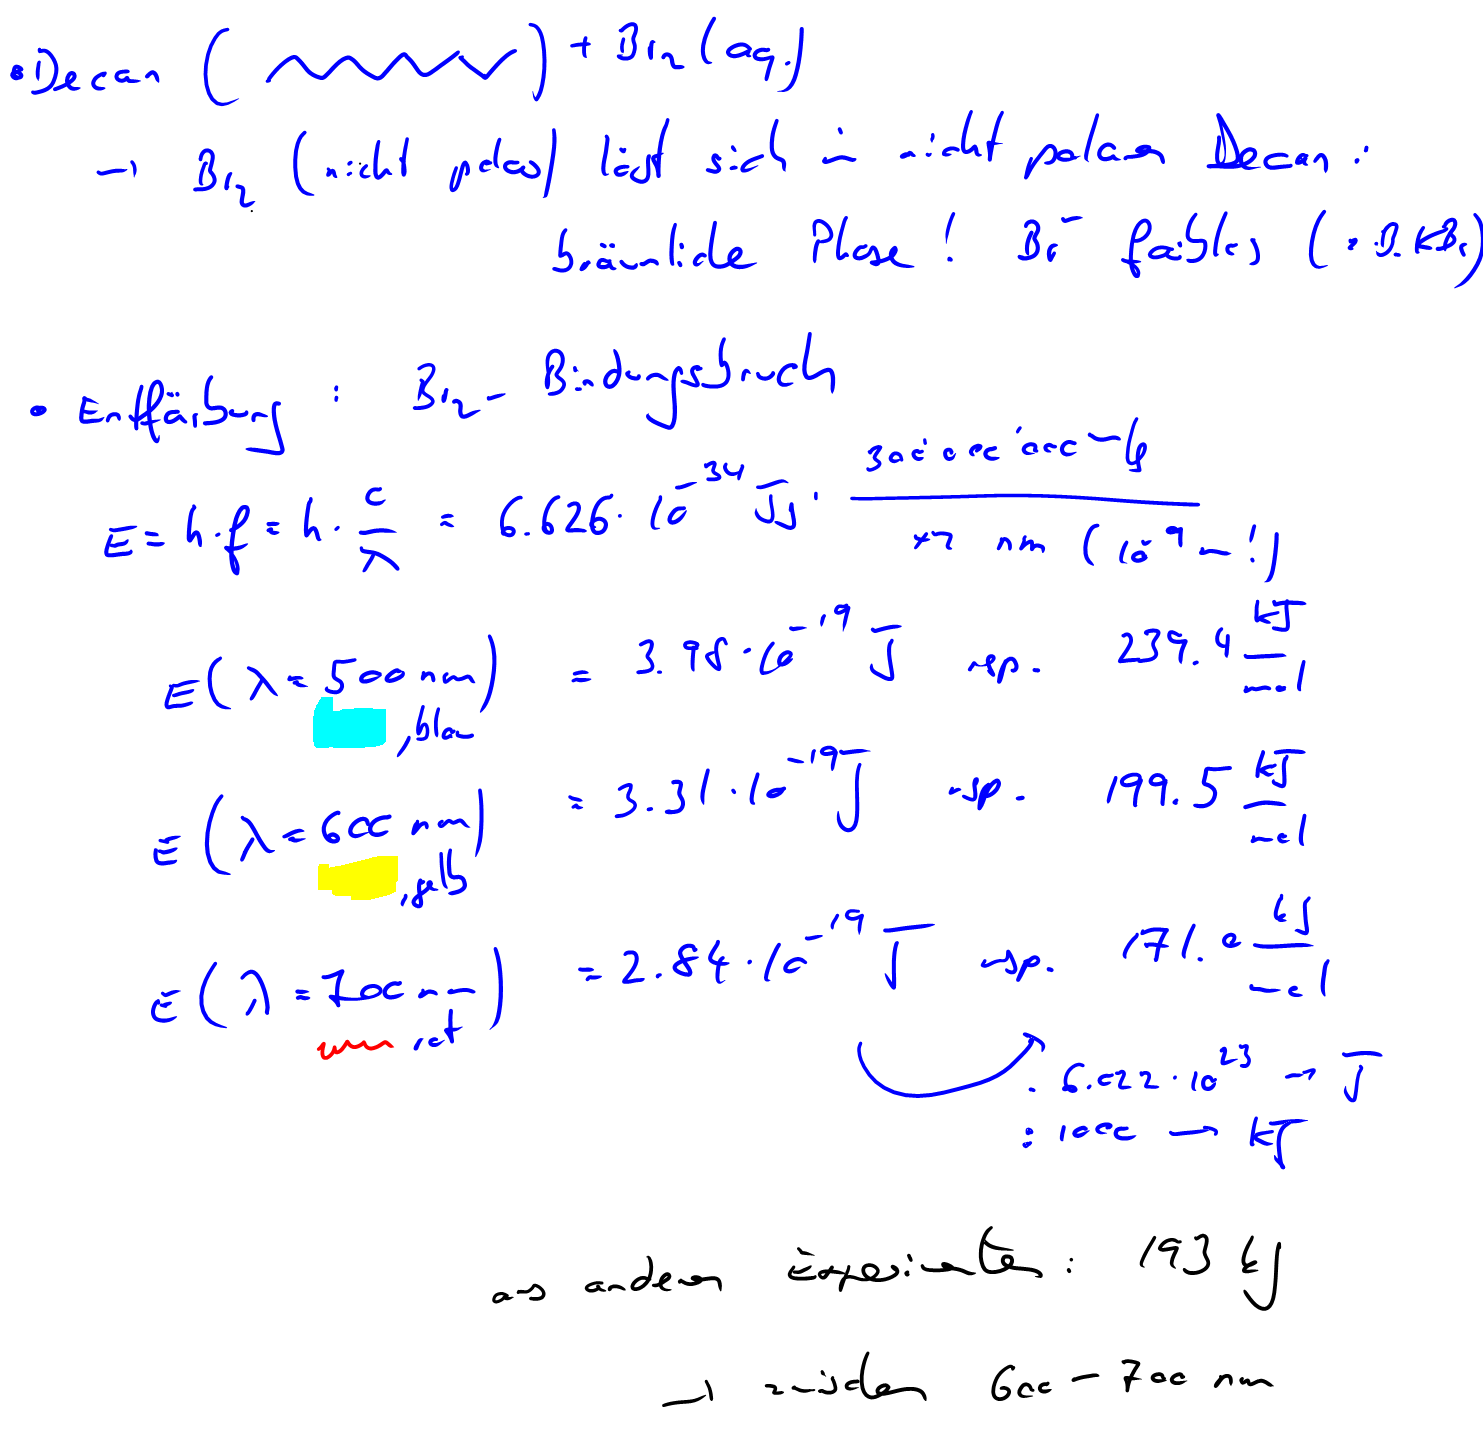 • Decan ( ) + Br₂ (aq.)
→ Br₂ (nicht polar) löst sich in nicht polarem Decan :
bräunliche Phase ! Br⁻ farblos (z.B. KBr)
• Entfärbung : Br₂- Bindungsbruch
E = h·f = h · c/λ = 6.626 · 10⁻³⁴ Js · 300'000'000 m/s / xy nm (10⁻⁹ m !)
E(λ = 500 nm) = 3.98 · 10⁻¹⁹ J resp. 239.4 kJ/mol
, blau
E(λ = 600 nm) = 3.31 · 10⁻¹⁹ J resp. 199.5 kJ/mol
, gelb
E(λ = 700 nm) = 2.84 · 10⁻¹⁹ J resp. 171.0 kJ/mol
, rot
· 6.022 · 10²³ → J
: 1000 → kJ
aus anderen Experimenten : 193 kJ
→ zwischen 600 – 700 nm